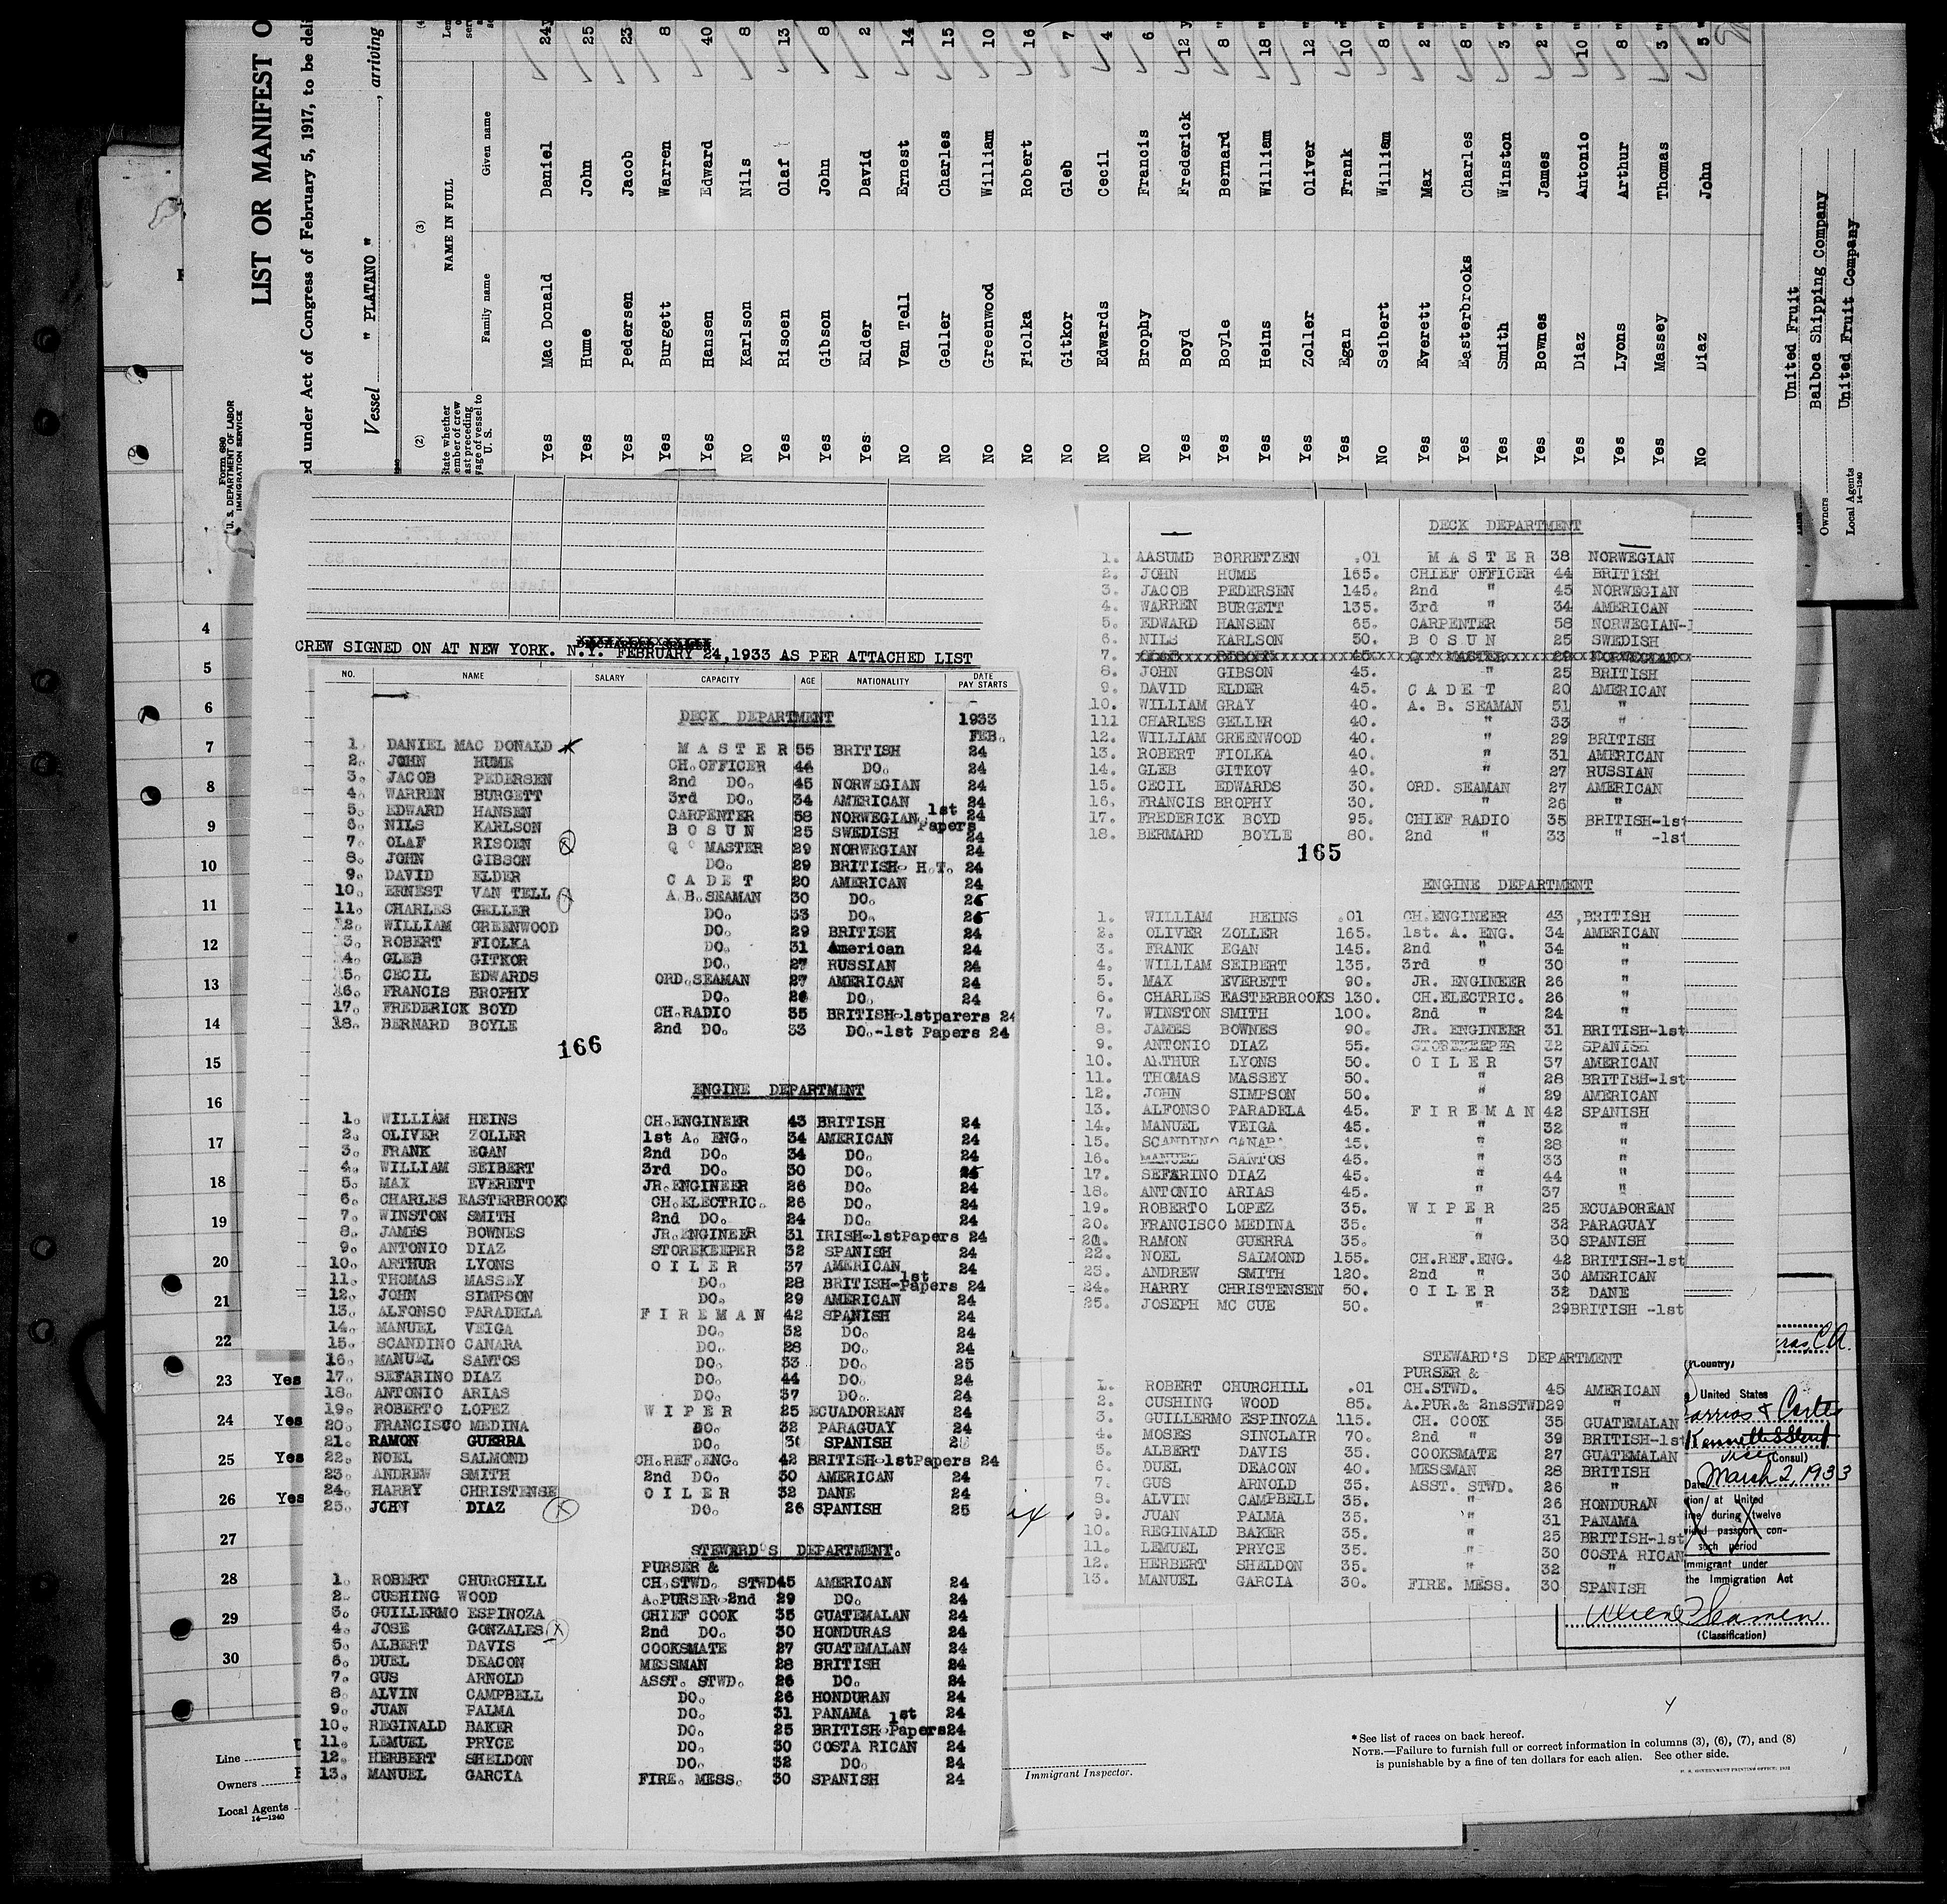 LIST OR MANIFEST O
ed under Act of Congress of February 5, 1917, to be deli
Vessel " PLATANO " , arriving
Form 680
U. S. DEPARTMENT OF LABOR
IMMIGRATION SERVICE
(2) (3) (4)
NAME IN FULL
State whether
ember of crew
ast preceding
yage of vessel to
U. S.
Family name Given name
Yes Mac Donald Daniel 24
Yes Hume John 25
Yes Pedersen Jacob 23
Yes Burgett Warren 8
Yes Hansen Edward 40
No Karlson Nils 8
Yes Risoen Olaf 13
Yes Gibson John 8
Yes Elder David 2
No Van Tell Ernest 14
No Geller Charles 15
No Greenwood William 10
No Fiolka Robert 16
No Gitkor Gleb 7
No Edwards Cecil 4
No Brophy Francis 6
Yes Boyd Frederick 12 y
Yes Boyle Bernard 8 "
Yes Heins William 18 "
Yes Zoller Oliver 12 "
Yes Egan Frank 10 "
No Seibert William 8 "
Yes Everett Max 2 "
Yes Easterbrooks Charles 8 "
Yes Smith Winston 3 "
Yes Bownes James 2 "
Yes Diaz Antonio 10 "
Yes Lyons Arthur 8 "
Yes Massey Thomas 3 "
No Diaz John 5 "
United Fruit
Owners Balboa Shipping Company
Local Agents United Fruit Company
14—1240
CREW SIGNED ON AT NEW YORK. N.Y. FEBRUARY 24,1933 AS PER ATTACHED LIST
NO. NAME SALARY CAPACITY AGE NATIONALITY DATE PAY STARTS
DECK DEPARTMENT 1933
FEB.
1. DANIEL MAC DONALD M A S T E R 55 BRITISH 24
2. JOHN HUME CH.OFFICER 44 DO. 24
3. JACOB PEDERSEN 2nd DO. 45 NORWEGIAN 24
4. WARREN BURGETT 3rd DO. 34 AMERICAN 24
5. EDWARD HANSEN CARPENTER 58 NORWEGIAN 1st Papers 24
6. NILS KARLSON B O S U N 25 SWEDISH 24
7. OLAF RISOEN Q MASTER 29 NORWEGIAN 24
8. JOHN GIBSON DO. 29 BRITISH- H.T. 24
9. DAVID ELDER C A D E T 20 AMERICAN 24
10. ERNEST VAN TELL A.B.SEAMAN 30 DO. 25
11. CHARLES GELLER DO. 33 DO. 25
12. WILLIAM GREENWOOD DO. 29 BRITISH 24
3. ROBERT FIOLKA DO. 31 American 24
4. GLEB GITKOR DO. 27 RUSSIAN 24
5. CECIL EDWARDS ORD.SEAMAN 27 AMERICAN 24
16. FRANCIS BROPHY DO. 26 DO. 24
17. FREDERICK BOYD CH.RADIO 35 BRITISH-1stparers 24
18. BERNARD BOYLE 2nd DO. 33 DO.-1st Papers 24
166
ENGINE DEPARTMENT
1. WILLIAM HEINS CH.ENGINEER 43 BRITISH 24
2. OLIVER ZOLLER 1st A. ENG. 34 AMERICAN 24
3. FRANK EGAN 2nd DO. 34 DO. 24
4. WILLIAM SEIBERT 3rd DO. 30 DO. 25
5. MAX EVERETT JR.ENGINEER 26 DO. 24
6. CHARLES EASTERBROOK CH.ELECTRIC. 26 DO. 24
7. WINSTON SMITH 2nd DO. 24 DO. 24
8. JAMES BOWNES JR.ENGINEER 31 IRISH-1stPapers 24
9. ANTONIO DIAZ STOREKEEPER 32 SPANISH 24
10. ARTHUR LYONS O I L E R 37 AMERICAN 24
11. THOMAS MASSEY DO. 28 BRITISH-1st Papers 24
12. JOHN SIMPSON DO. 29 AMERICAN 24
13. ALFONSO PARADELA F I R E M A N 42 SPANISH 24
14. MANUEL VEIGA DO. 32 DO. 24
15. SCANDINO CANARA DO. 28 DO. 24
16. MANUEL SANTOS DO. 33 DO. 25
17. SEFARINO DIAZ DO. 44 DO. 24
18. ANTONIO ARIAS DO. 37 DO. 24
19. ROBERTO LOPEZ W I P E R 25 ECUADOREAN 24
20. FRANCISCO MEDINA DO. 32 PARAGUAY 24
21. RAMON GUERRA DO. 30 SPANISH 25
22. NOEL SALMOND CH.REF.ENG. 42 BRITISH-1stPapers 24
23. ANDREW SMITH 2nd DO. 30 AMERICAN 24
24. HARRY CHRISTENSE O I L E R 32 DANE 24
25. JOHN DIAZ DO. 26 SPANISH 25
STEWARD'S DEPARTMENT.
PURSER &
1. ROBERT CHURCHILL CH.STWD. STWD 45 AMERICAN 24
2. CUSHING WOOD A.PURSER-2nd 29 DO. 24
3. GUILLERMO ESPINOZA CHIEF COOK 35 GUATEMALAN 24
4. JOSE GONZALES 2nd DO. 30 HONDURAS 24
5. ALBERT DAVIS COOKSMATE 27 GUATEMALAN 24
6. DUEL DEACON MESSMAN 28 BRITISH 24
7. GUS ARNOLD ASST. STWD. 26 DO. 24
8. ALVIN CAMPBELL DO. 26 HONDURAN 24
9. JUAN PALMA DO. 31 PANAMA 24
10. REGINALD BAKER DO. 25 BRITISH-1st Papers 24
11. LEMUEL PRYCE DO. 30 COSTA RICAN 24
12. HERBERT SHELDON DO. 32 DO. 24
13. MANUEL GARCIA FIRE. MESS. 30 SPANISH 24
DECK DEPARTMENT
1. AASUMD BORRETZEN .01 M A S T E R 38 NORWEGIAN
2. JOHN HUME 165. CHIEF OFFICER 44 BRITISH
3. JACOB PEDERSEN 145. 2nd " 45 NORWEGIAN
4. WARREN BURGETT 135. 3rd " 34 AMERICAN
5. EDWARD HANSEN 65. CARPENTER 58 NORWEGIAN-1
6. NILS KARLSON 50. B O S U N 25 SWEDISH
7.
8. JOHN GIBSON 45. " 25 BRITISH
9. DAVID ELDER 45. C A D E T 20 AMERICAN
10. WILLIAM GRAY 40. A. B. SEAMAN 51 "
111 CHARLES GELLER 40. " 33 "
12. WILLIAM GREENWOOD 40. " 29 BRITISH
13. ROBERT FIOLKA 40. " 31 AMERICAN
14. GLEB GITKOV 40. " 27 RUSSIAN
15. CECIL EDWARDS 30. ORD. SEAMAN 27 AMERICAN
16. FRANCIS BROPHY 30. " 26 "
17. FREDERICK BOYD 95. CHIEF RADIO 35 BRITISH-1st
18. BERMARD BOYLE 80. 2nd " 33 " -1st
165
ENGINE DEPARTMENT
1. WILLIAM HEINS .01 CH.ENGINEER 43 BRITISH
2. OLIVER ZOLLER 165. 1st. A. ENG. 34 AMERICAN
3. FRANK EGAN 145. 2nd " 34 "
4. WILLIAM SEIBERT 135. 3rd " 30 "
5. MAX EVERETT 90. JR. ENGINEER 26 "
6. CHARLES EASTERBROOKS 130. CH.ELECTRIC. 26 "
7. WINSTON SMITH 100. 2nd " 24 "
8. JAMES BOWNES 90. JR. ENGINEER 31 BRITISH-1st
9. ANTONIO DIAZ 55. STOREKEEPER 32 SPANISH
10. ARTHUR LYONS 50. O I L E R 37 AMERICAN
11. THOMAS MASSEY 50. " 28 BRITISH-1st
12. JOHN SIMPSON 50. " 29 AMERICAN
13. ALFONSO PARADELA 45. F I R E M A N 42 SPANISH
14. MANUEL VEIGA 45. " 32 "
15. SCANDINO CANARA 45. " 28 "
16. MANUEL SANTOS 45. " 33 "
17. SEFARINO DIAZ 45. " 44 "
18. ANTONIO ARIAS 45. " 37 "
19. ROBERTO LOPEZ 35. W I P E R 25 ECUADOREAN
20. FRANCISCO MEDINA 35. " 32 PARAGUAY
21. RAMON GUERRA 35. " 30 SPANISH
22. NOEL SALMOND 155. CH.REF.ENG. 42 BRITISH-1st
23. ANDREW SMITH 120. 2nd " 30 AMERICAN
24. HARRY CHRISTENSEN 50. O I L E R 32 DANE
25. JOSEPH MC CUE 50. " 29BRITISH -1st
STEWARD'S DEPARTMENT
PURSER &
1. ROBERT CHURCHILL .01 CH.STWD. 45 AMERICAN
2. CUSHING WOOD 85. A.PUR.& 2nsSTWD29 "
3. GUILLERMO ESPINOZA 115. CH. COOK 35 GUATEMALAN
4. MOSES SINCLAIR 70. 2nd " 39 BRITISH-1st
5. ALBERT DAVIS 35. COOKSMATE 27 GUATEMALAN
6. DUEL DEACON 40. MESSMAN 28 BRITISH
7. GUS ARNOLD 35. ASST. STWD. 26 "
8. ALVIN CAMPBELL 35. " 26 HONDURAN
9. JUAN PALMA 35. " 31 PANAMA
10. REGINALD BAKER 35. " 25 BRITISH-1st
11. LEMUEL PRYCE 35. " 30 COSTA RICAN
12. HERBERT SHELDON 35. " 32 "
13. MANUEL GARCIA 30. FIRE. MESS. 30 SPANISH
4
5
6
7
8
9
10
11
12
13
14
15
16
17
18
19
20
21
22
23 Yes
24 Yes
25 Yes
26 Yes
27
28
29
30
Line
Owners
Local Agents
14—1240
(Country)
United States
(Consul)
Date March 2, 1933
tion at United
ime during twelve
vided passport con-
such period
mmigrant under
the Immigration Act
(Classification)
Immigrant Inspector.
* See list of races on back hereof.
NOTE.—Failure to furnish full or correct information in columns (3), (6), (7), and (8)
is punishable by a fine of ten dollars for each alien. See other side.
U. S. GOVERNMENT PRINTING OFFICE: 1931